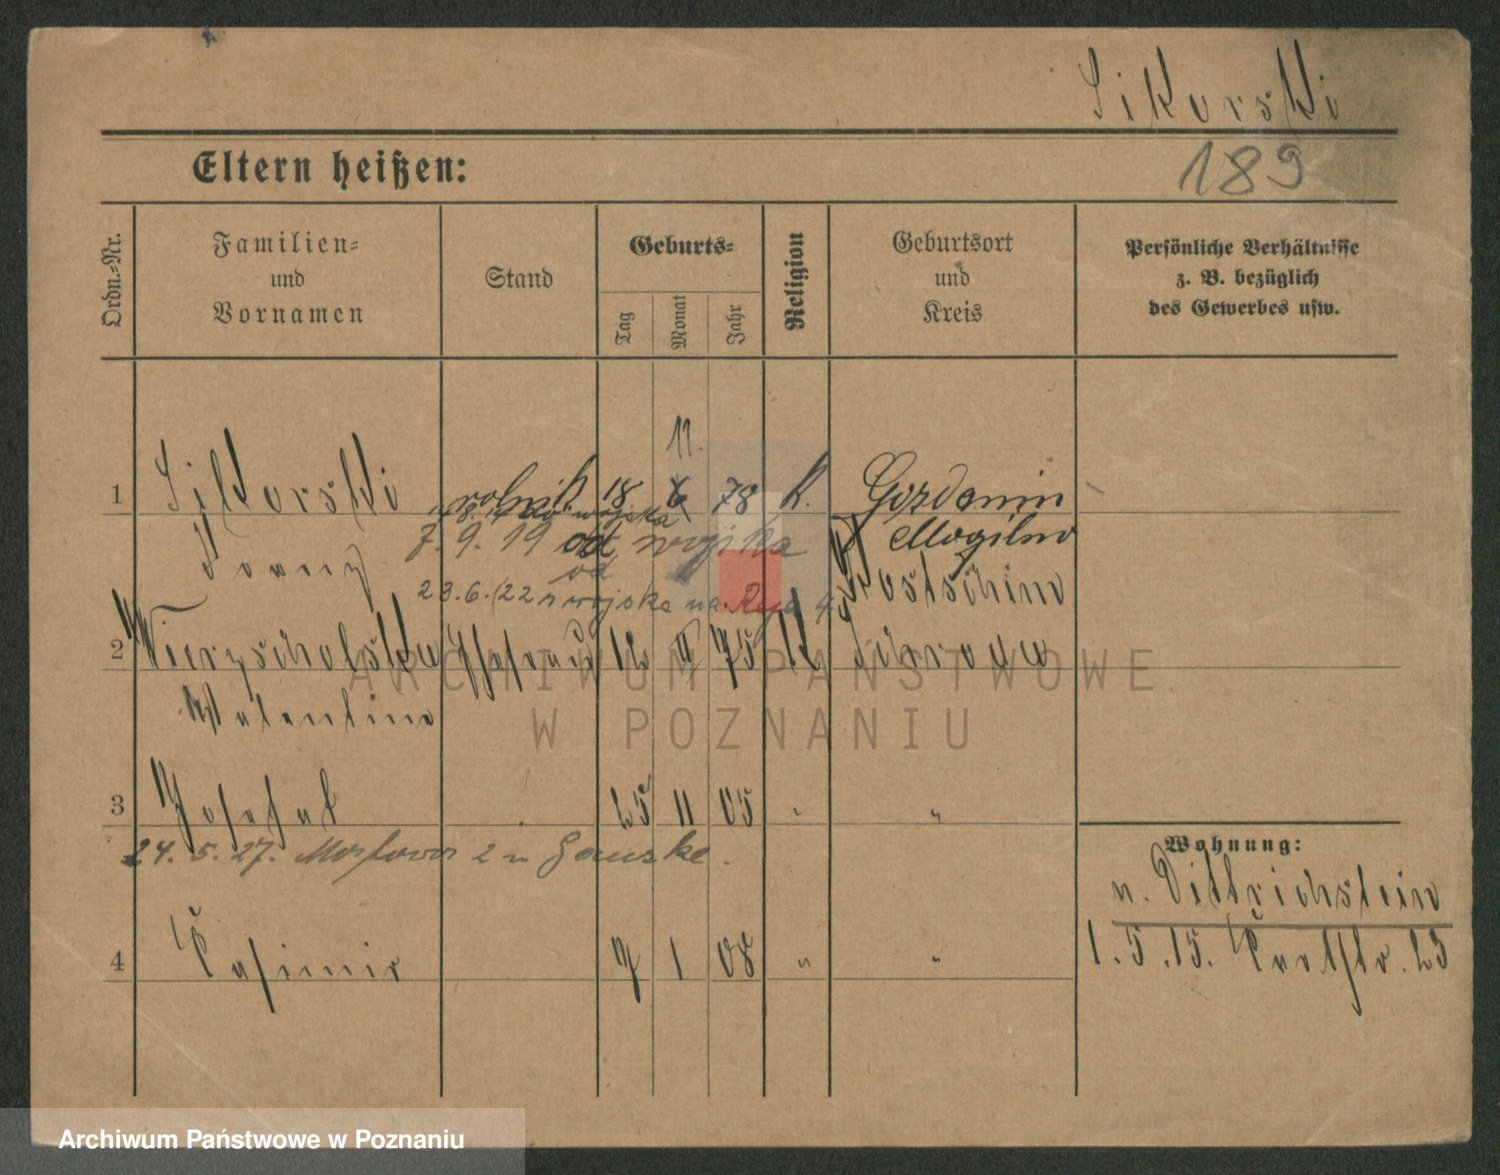 Sikorski
189
Eltern heißen:
Ordn.-Nr.
Familien-
und
Vornamen
Stand
Geburts-
Tag
Monat
Jahr
Religion
Geburtsort
und
Kreis
Persönliche Verhältnisse
z. B. bezüglich
des Gewerbes usw.
11.
1 Sikorski rolnik 18 6 78 k. Gozdanin
wojska
7. 9. 19 od wojska Mogilno
Franz
od
23.6.22 z wojska na Reja 4
Kostschin
2 Ehefrau 12 75 K Schroda
Valentine
3 Josefat 25 11 05 " "
24. 5. 27. 2 u Gauske.
Wohnung:
n. Dittrichstein
4 Casimir 7 1 08 " "
1. 5. 15. 23
ARCHIWUM PAŃSTWOWE
W POZNANIU
Archiwum Państwowe w Poznaniu